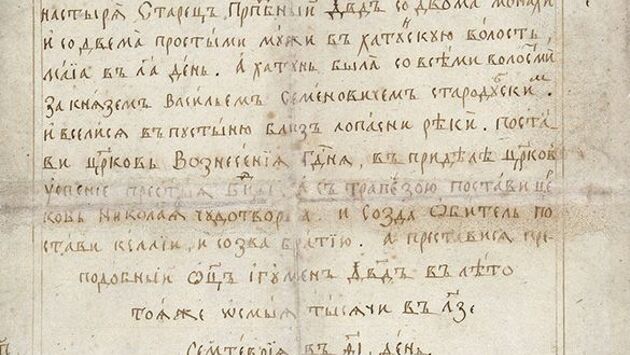 настыря Старец Прпⷣбный Дв҃дъ со двома монахи
и со двема простыми мужи въ хатунскую волость,
маїа въ л҃а день. А хатунь была со всѣми волостьми
за княземъ Васильемъ Семеновичемъ стародубским.
и вселися въ пустыню близъ лопасни рѣки. поста
ви цр҃ковь Вознесенїя гⷭ҇дня, въ приделѣ цр҃ковь
успенїе престыя съ трапезою постави це
ковь николая чудотворца. и созда ѡбитель по
стави келлїи, и созва братїю. а преставися пре
подобный ѡц҃ъ їгуменъ Дв҃дъ въ лѣто
тояже ѡсмыя тысячи въ к҃з е
Септеврїа въ день.